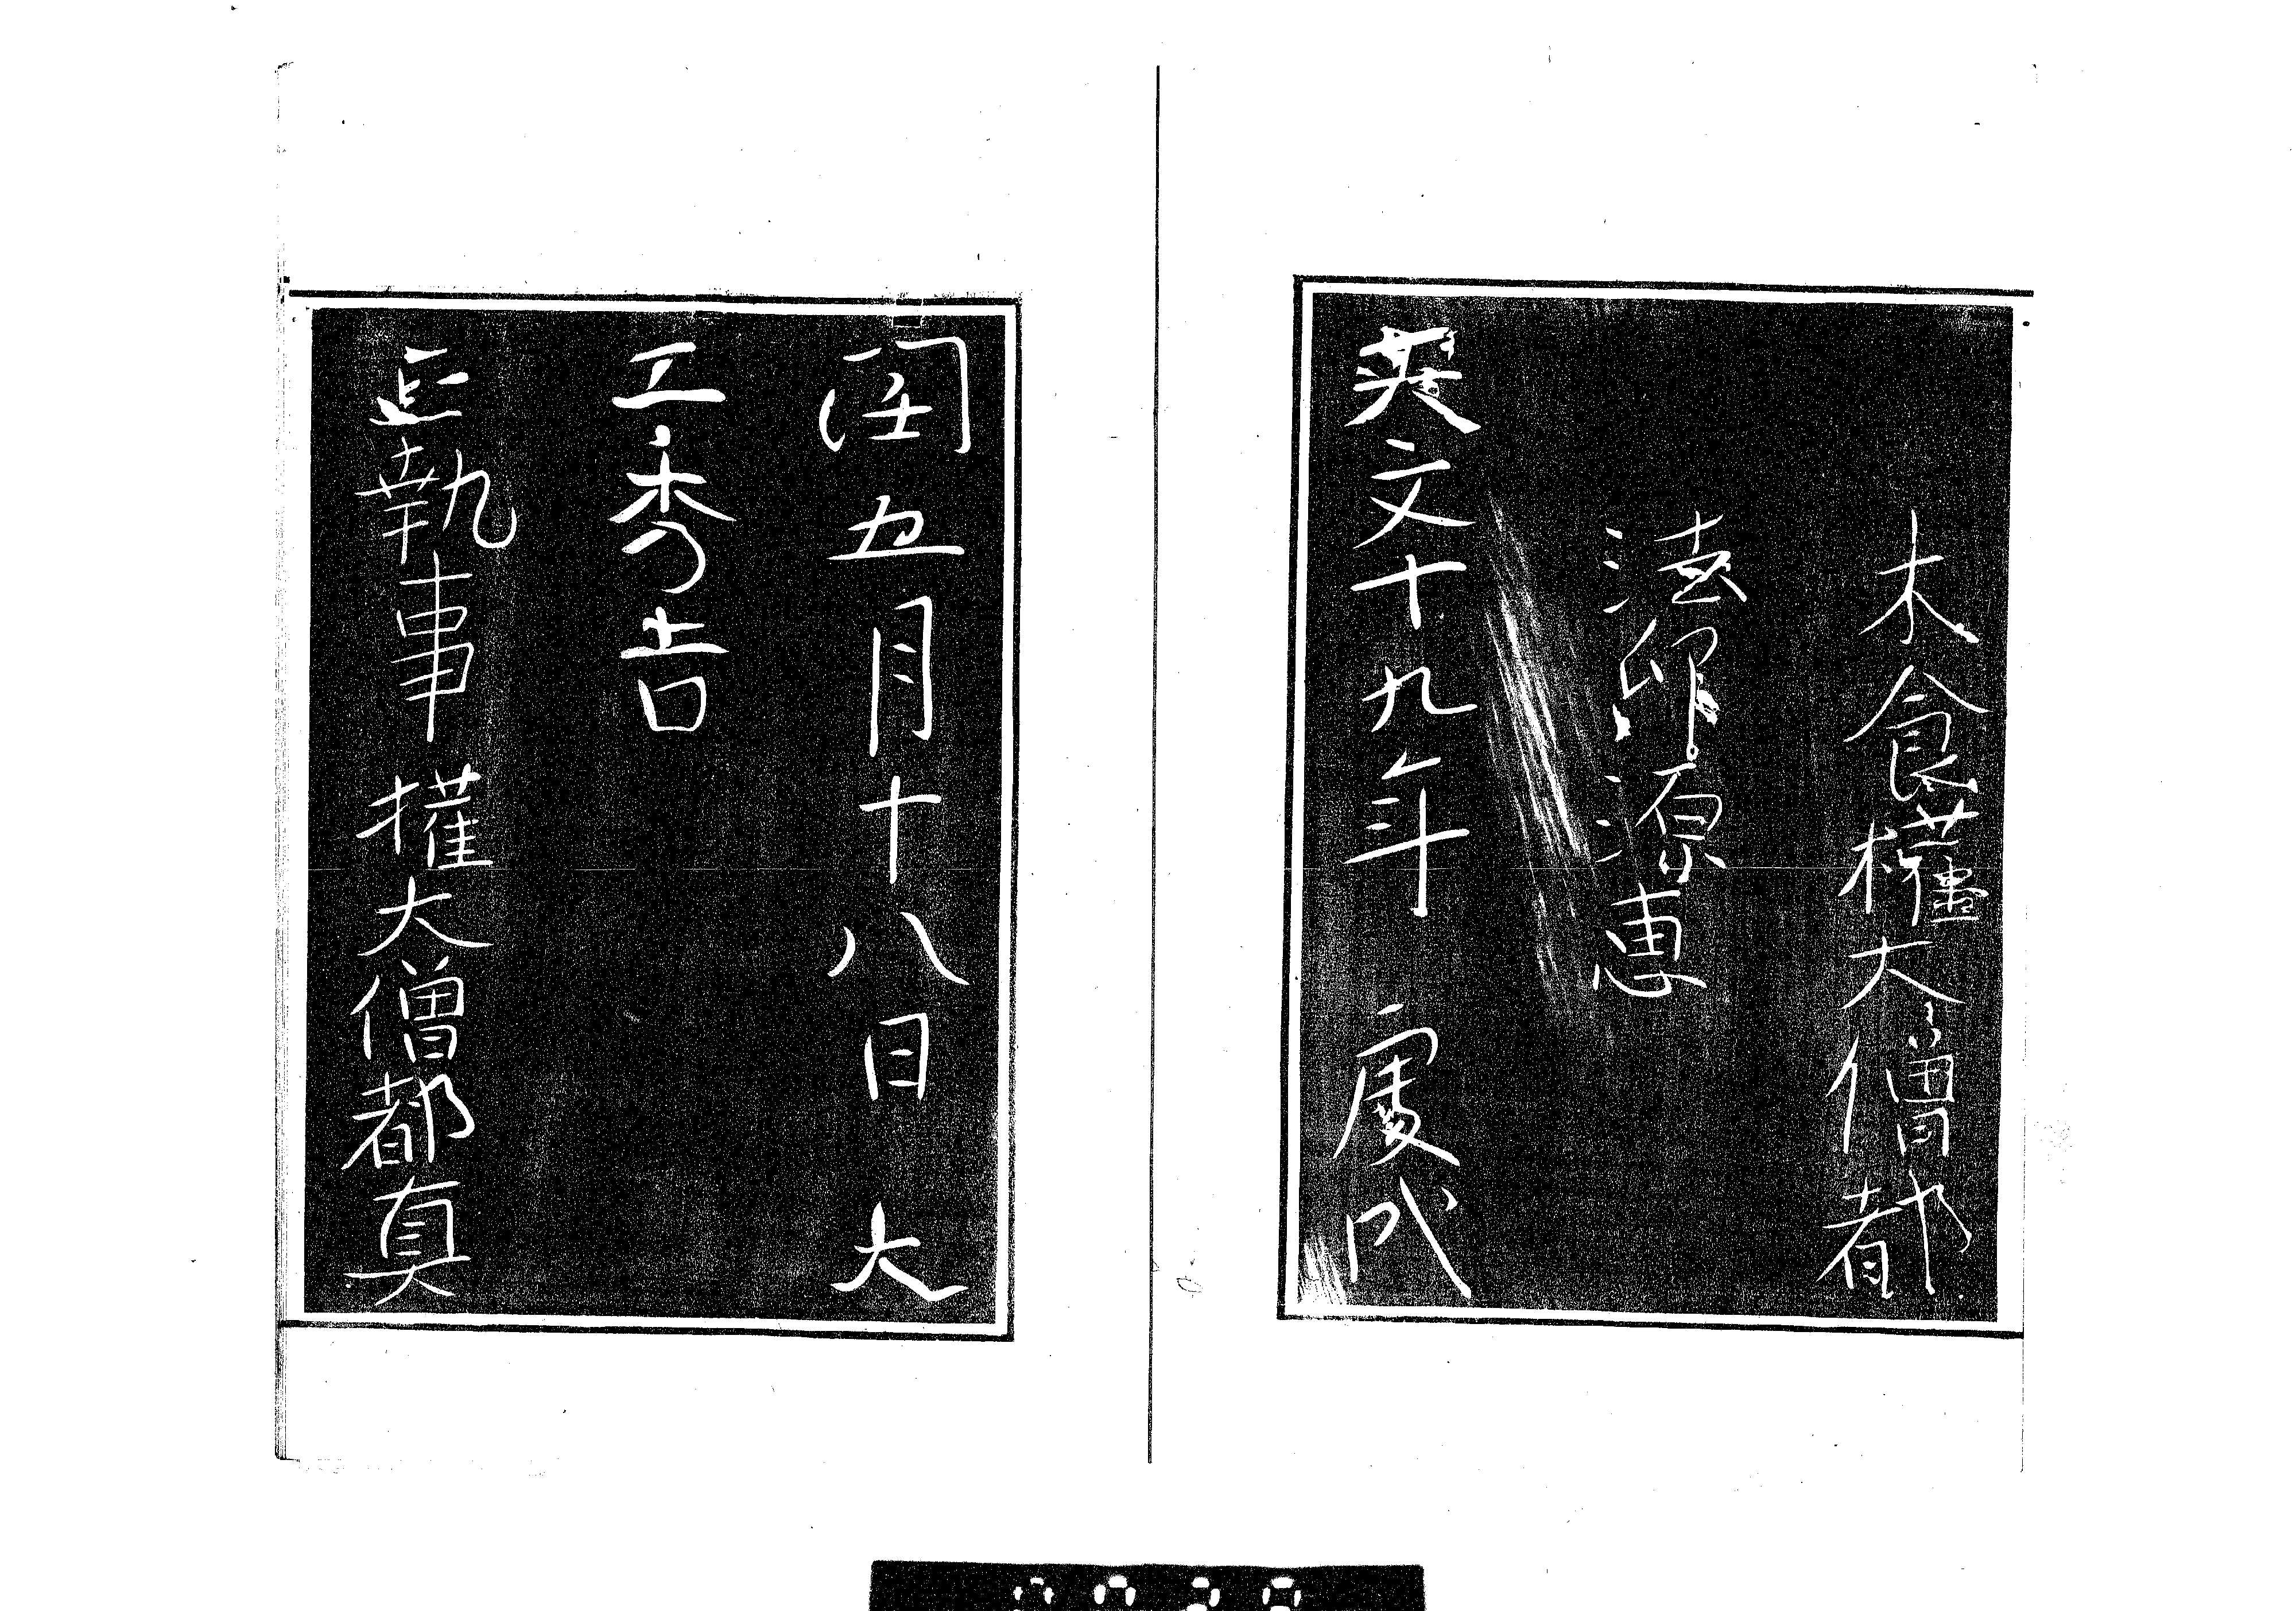 木食權大僧都
法印源恵
天文十九年 庚戌
閏五月十八日 大
工秀吉
正執事 權大僧都真